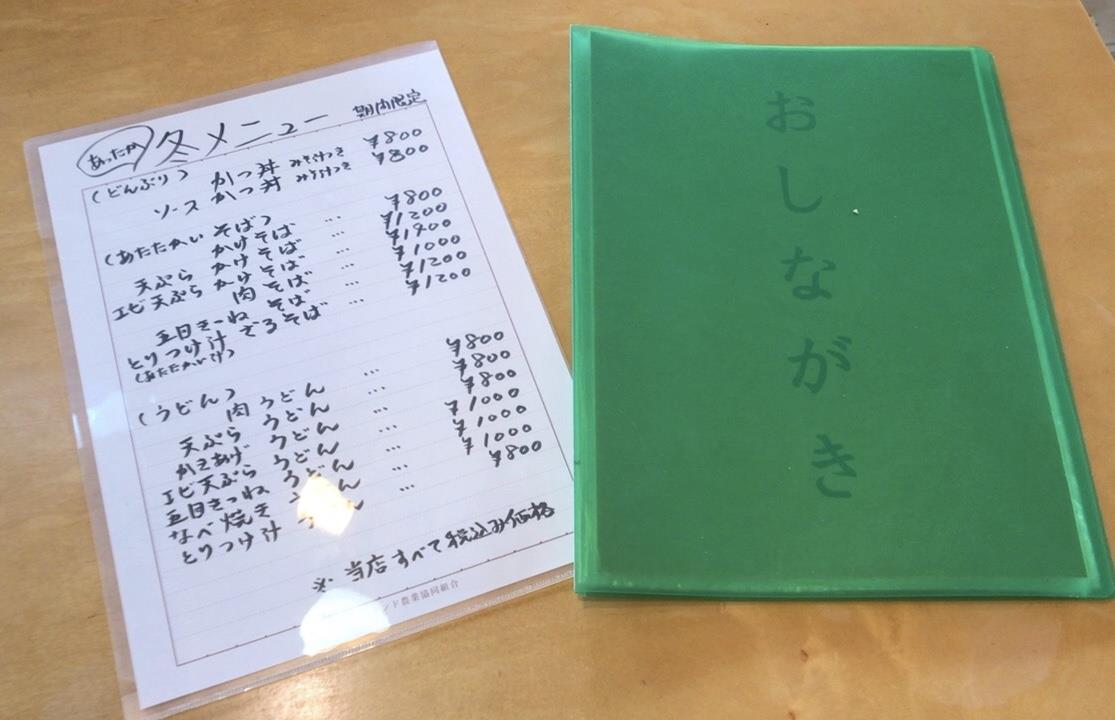 あったか 冬メニュー 期間限定
(どんぶり) かつ丼 みそ汁つき ¥800
ソースかつ丼 みそ汁つき ¥800
(あたたかいそば)
かけそば … ¥800
天ぷらかけそば ¥1200
エビ天ぷらかけそば … ¥1400
肉そば ¥1000
五目きつねそば … ¥1200
とりつけ汁ざるそば … ¥1200
(あたたかい汁)
(うどん)
肉うどん … ¥800
天ぷらうどん ¥800
かきあげうどん … ¥800
エビ天ぷらうどん … ¥1000
五目きつねうどん ¥1000
なべ焼きうどん … ¥1000
とりつけ汁うどん … ¥800
※当店すべて税込み価格
ンド農業協同組合
おしながき